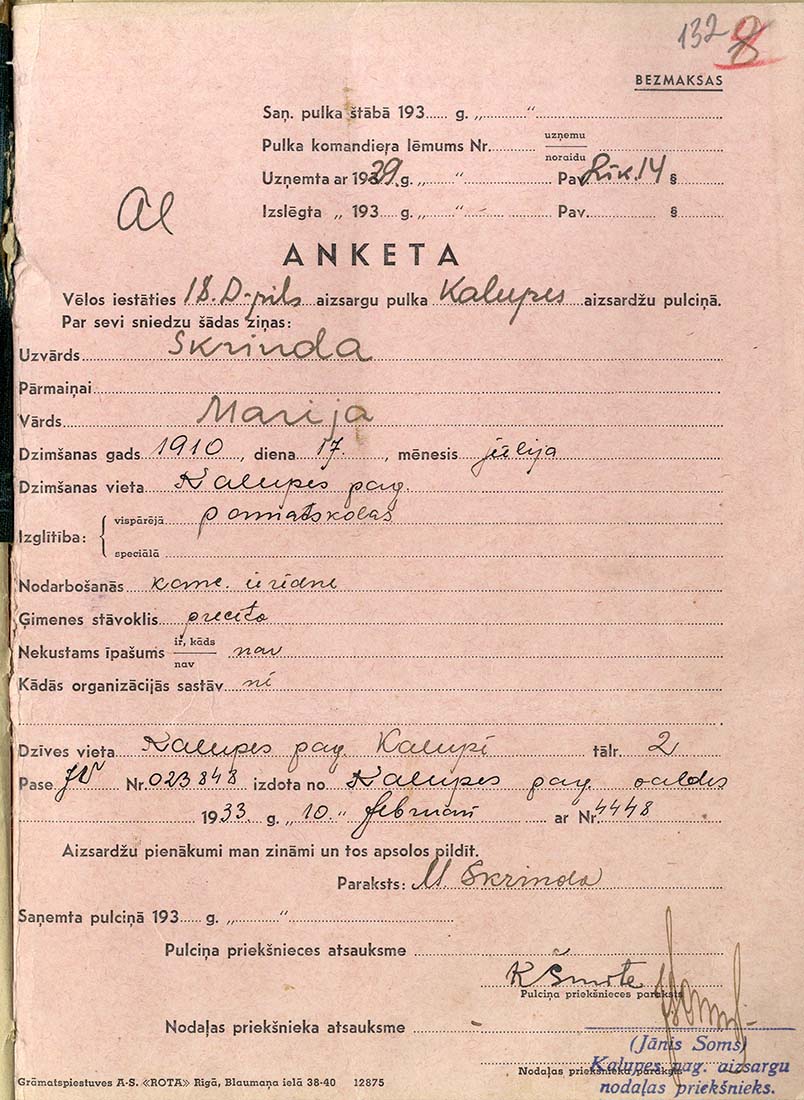 132 8
BEZMAKSAS
Saņ. pulka štābā 193...... g. „............“
Pulka komandieŗa lēmums Nr............ uzņemu
noraidu
Uzņemta ar 1939. g. „......“ ............ Pav. Rīk. 14 §
Al
Izslēgta „ 193..... g. „......“ ............ Pav............ §
ANKETA
Vēlos iestāties 18. D-pils aizsargu pulka Kalupes aizsardžu pulciņā.
Par sevi sniedzu šādas ziņas:
Uzvārds Skrinda
Pārmaiņai
Vārds Marija
Dzimšanas gads 1910, diena 17., mēnesis jūlija
Dzimšanas vieta Kalupes pag.
Izglītība: { vispārējā pamatskolas
speciālā
Nodarbošanās
Ģimenes stāvoklis precēta
Nekustams īpašums ir, kāds
nav
nav
Kādās organizācijās sastāv nē
Dzīves vieta Kalupes pag. Kalupē tālr. 2
Pase JV Nr. 023848 izdota no Kalupes pag. valdes
1933. g. „10.“ februarī ar Nr. 4448
Aizsardžu pienākumi man zināmi un tos apsolos pildīt.
Paraksts: M. Skrinda
Saņemta pulciņā 193..... g. „............“
Pulciņa priekšnieces atsauksme
K Šmite
Pulciņa priekšnieces paraksts
Nodaļas priekšnieka atsauksme
(Jānis Soms)
Nodaļas priekšnieka paraksts
Kalupes pag. aizsargu
nodaļas priekšnieks.
Grāmatspiestuves A-S. «ROTA» Rīgā, Blaumaņa ielā 38-40 12875